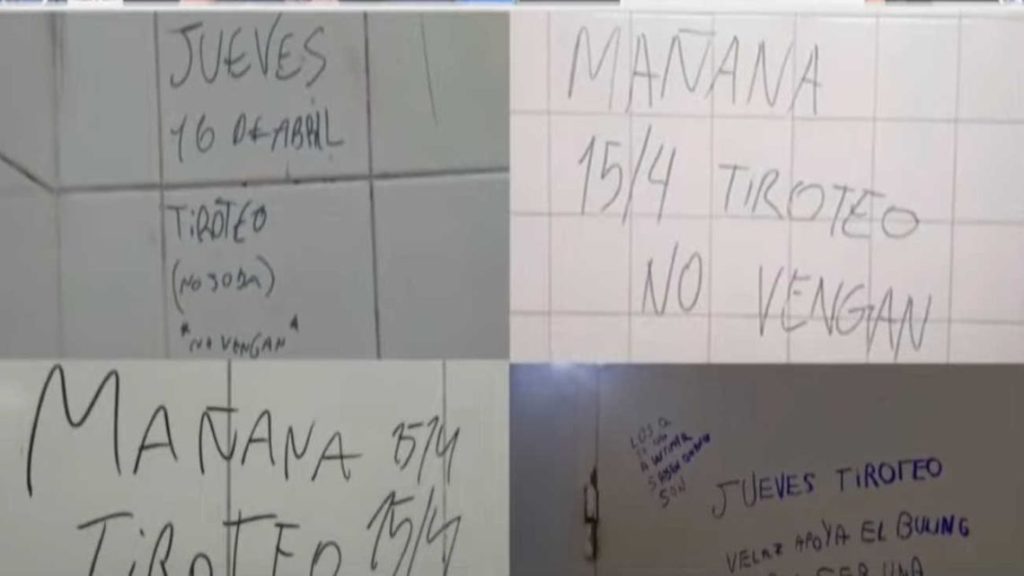 JUEVES
16 DE ABRIL
TIROTEO
(NO JODA)
"NO VENGAN"
MAÑANA
15/4 TIROTEO
NO VENGAN
MAÑANA 15/4
TIROTEO 15/4
LOS Q
SON
JUEVES TIROTEO
VELAZ APOYA EL BULING
SER UNA